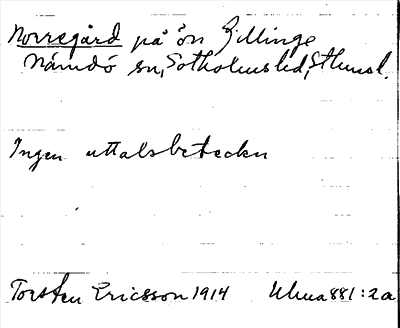 Norregård på ön Gillinge
Nämdö sn, Sotholms hd, Sthmsl.
Ingen uttalsbeteckn
Torsten Ericsson 1914 Ulma 881:2a